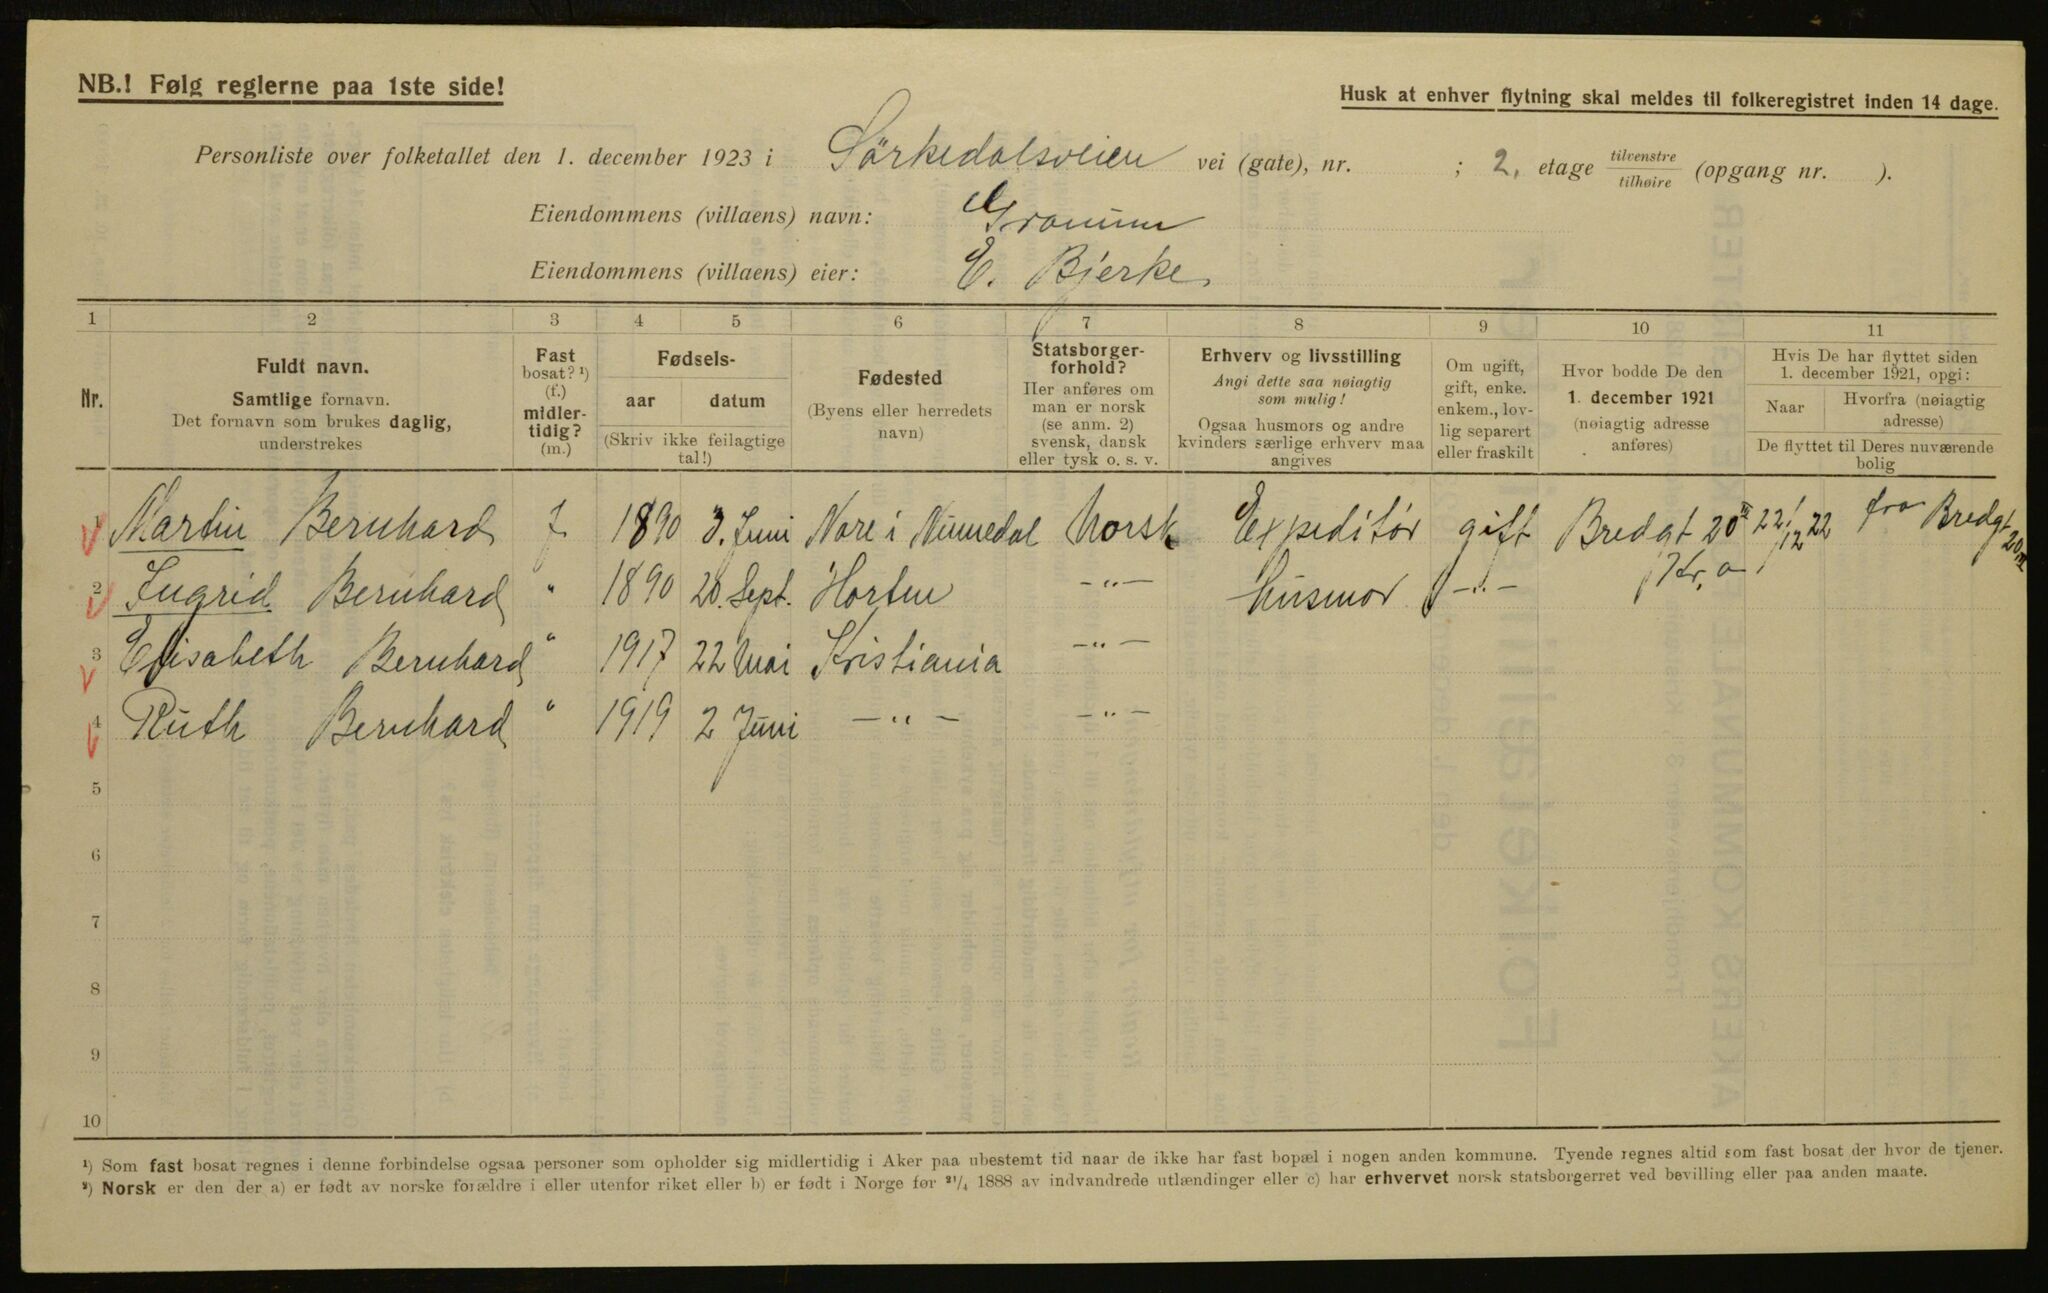 NB.! Følg reglerne paa 1ste side!
Husk at enhver flytning skal meldes til folkeregistret inden 14 dage.
Personliste over folketallet den 1. december 1923 i Sörkedalsveien vei (gate), nr. ; 2. etage tilvenstre/tilhøire (opgang nr. ).
Eiendommens (villaens) navn: Granum
Eiendommens (villaens) eier: E. Bjerke
1 2 3 4 5 6 7 8 9 10 11
Nr.
Fuldt navn.
Samtlige fornavn.
Det fornavn som brukes daglig,
understrekes
Fast
bosat? ¹)
(f.)
midler-
tidig?
(m.)
Fødsels-
aar datum
(Skriv ikke feilagtige
tal!)
Fødested
(Byens eller herredets
navn)
Statsborger-
forhold?
Her anføres om
man er norsk
(se anm. 2)
svensk, dansk
eller tysk o. s. v.
Erhverv og livsstilling
Angi dette saa nøiagtig
som mulig!
Ogsaa husmors og andre
kvinders særlige erhverv maa
angives
Om ugift,
gift, enke.
enkem., lov-
lig separert
eller fraskilt
Hvor bodde De den
1. december 1921
(nøiagtig adresse
anføres)
Hvis De har flyttet siden
1. december 1921, opgi:
Naar
Hvorfra (nøiagtig
adresse)
De flyttet til Deres nuværende
bolig
1 Martin Bernhard f 1890 3. Juni Nore i Numedal Norsk Expeditör gift Bredgt 20 III 22/12 22 fra Bredgt 20 III
2 Ingrid Bernhard " 1890 20. Sept. Horten -"- Husmor -"- Kr.a
3 Elisabeth Bernhard " 1917 22 Mai Kristiania -"-
4 Ruth Bernhard " 1919 2 Juni -"- -"-
5
6
7
8
9
10
¹) Som fast bosat regnes i denne forbindelse ogsaa personer som opholder sig midlertidig i Aker paa ubestemt tid naar de ikke har fast bopæl i nogen anden kommune. Tyende regnes altid som fast bosat der hvor de tjener.
²) Norsk er den der a) er født av norske forældre i eller utenfor riket eller b) er født i Norge før ²¹/₄ 1888 av indvandrede utlændinger eller c) har erhvervet norsk statsborgerret ved bevilling eller paa anden maate.